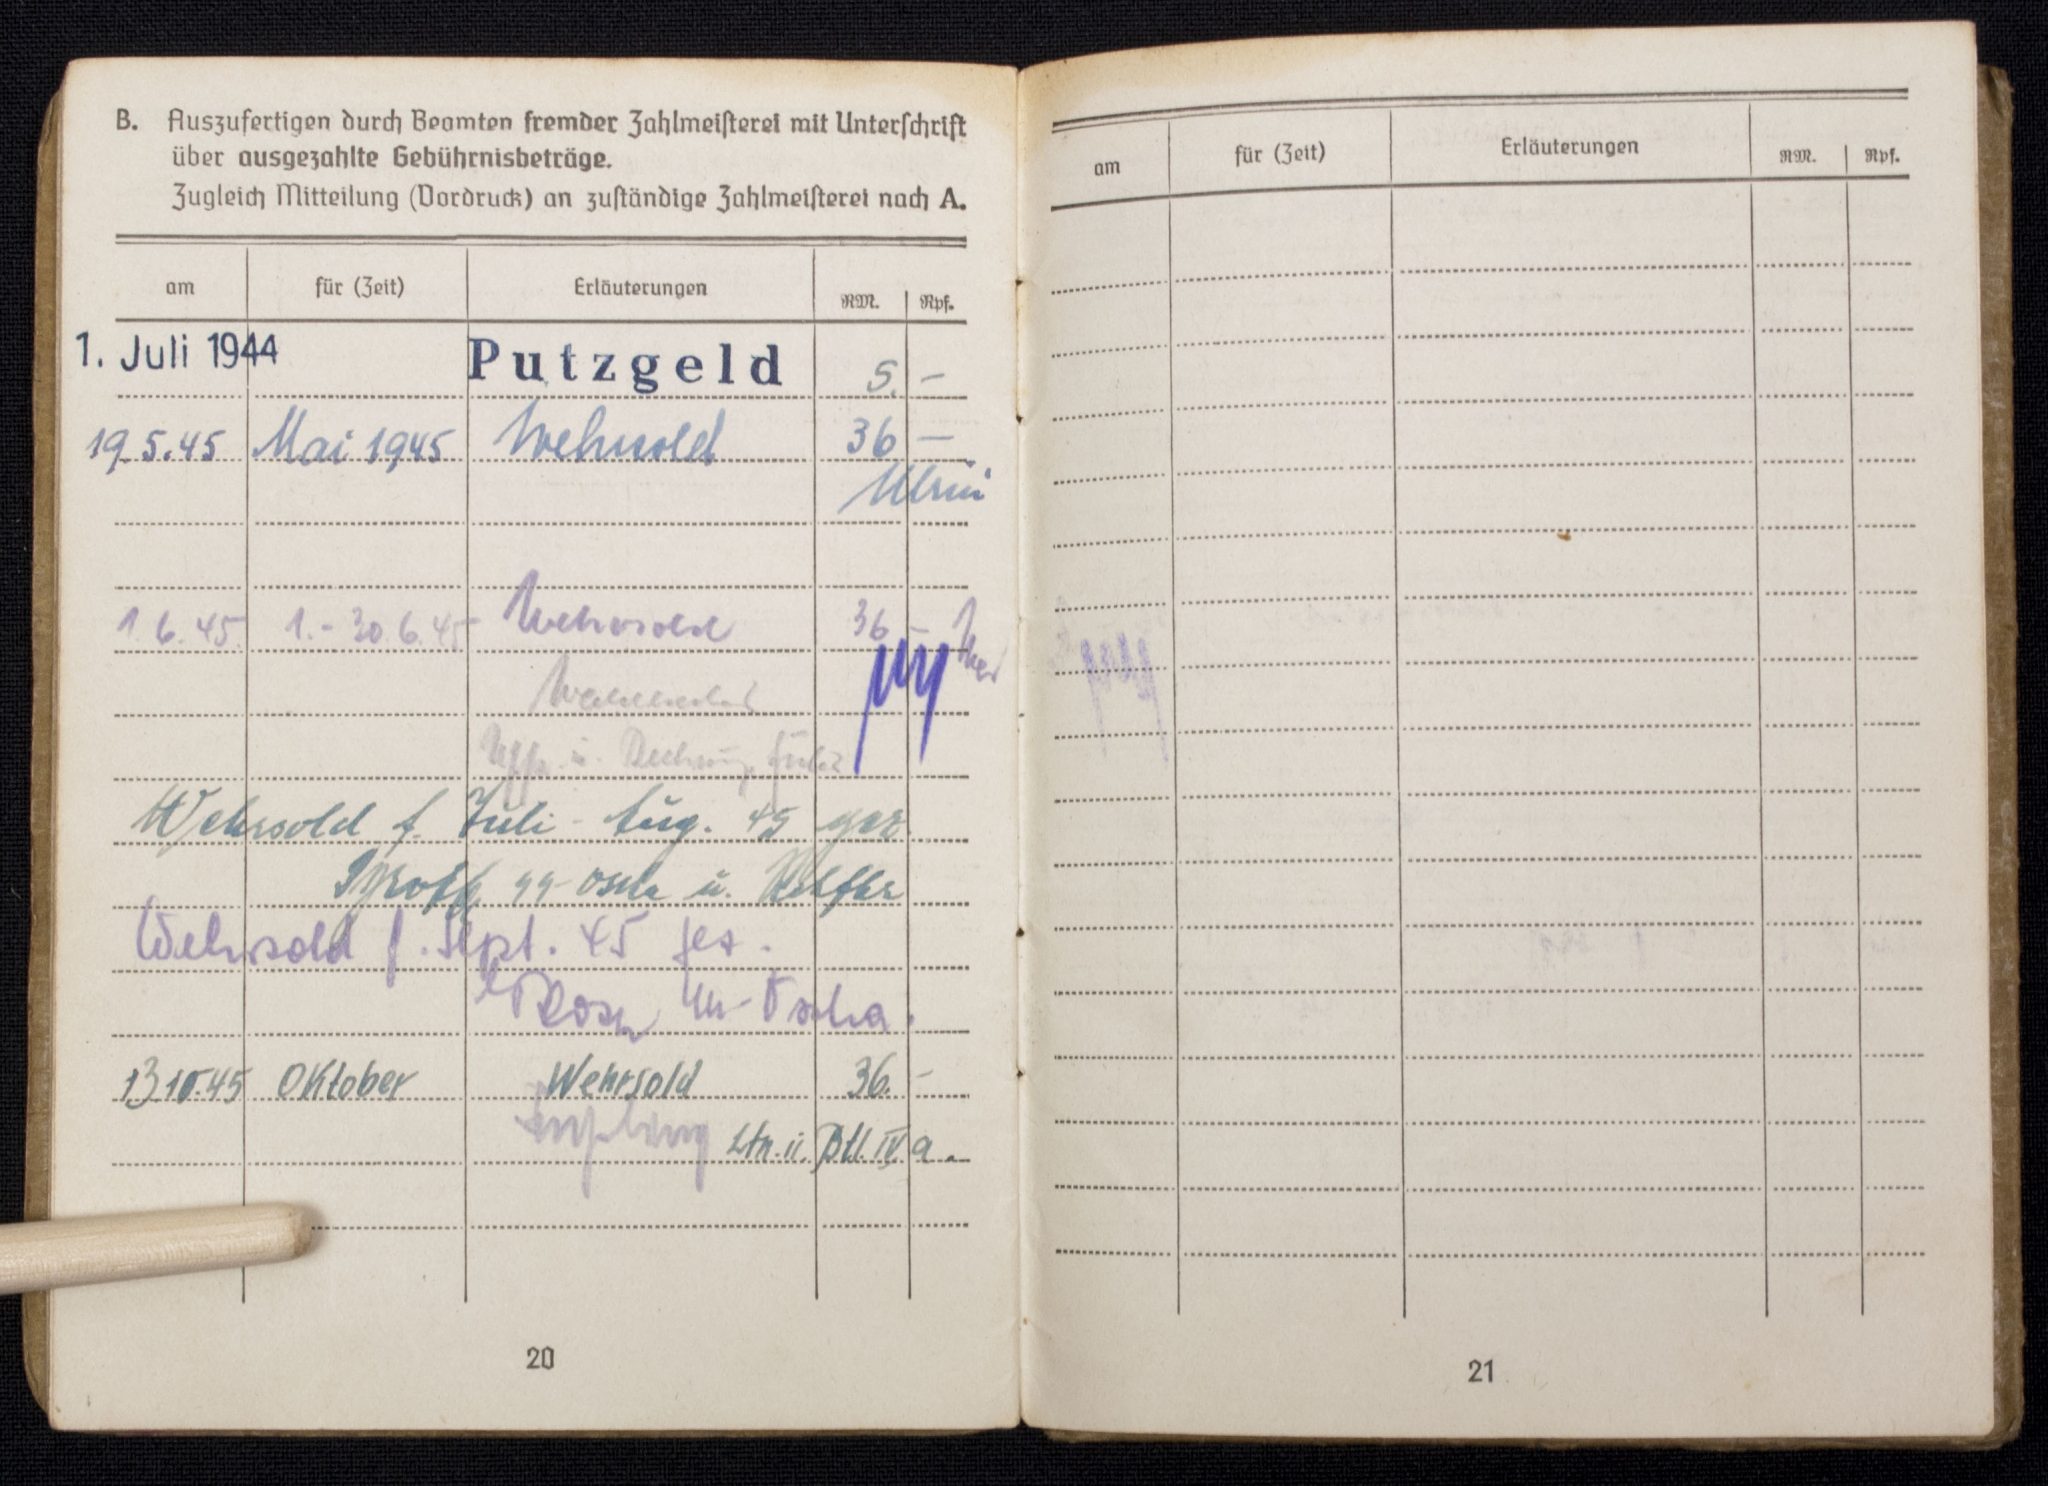 B. Auszufertigen durch Beamten fremder Zahlmeisterei mit Unterschrift
über ausgezahlte Gebührnisbeträge.
Zugleich Mitteilung (Vordruck) an zuständige Zahlmeisterei nach A.
am für (Zeit) Erläuterungen RM. Rpf.
1. Juli 1944 Putzgeld 5. –
19.5.45 Mai 1945 Wehrsold 36 –
1.6.45. 1.-30.6.45 Wehrsold 36 –
Uffz. u. Rechnungsführer
Wehrsold f. Juli - Aug. 45 gez.
Wehrsold f. Sept. 45 gez.
13.10.45 Oktober Wehrsold 36. –
Ltn. u. Btl. IV a.
20
am für (Zeit) Erläuterungen RM. Rpf.
21